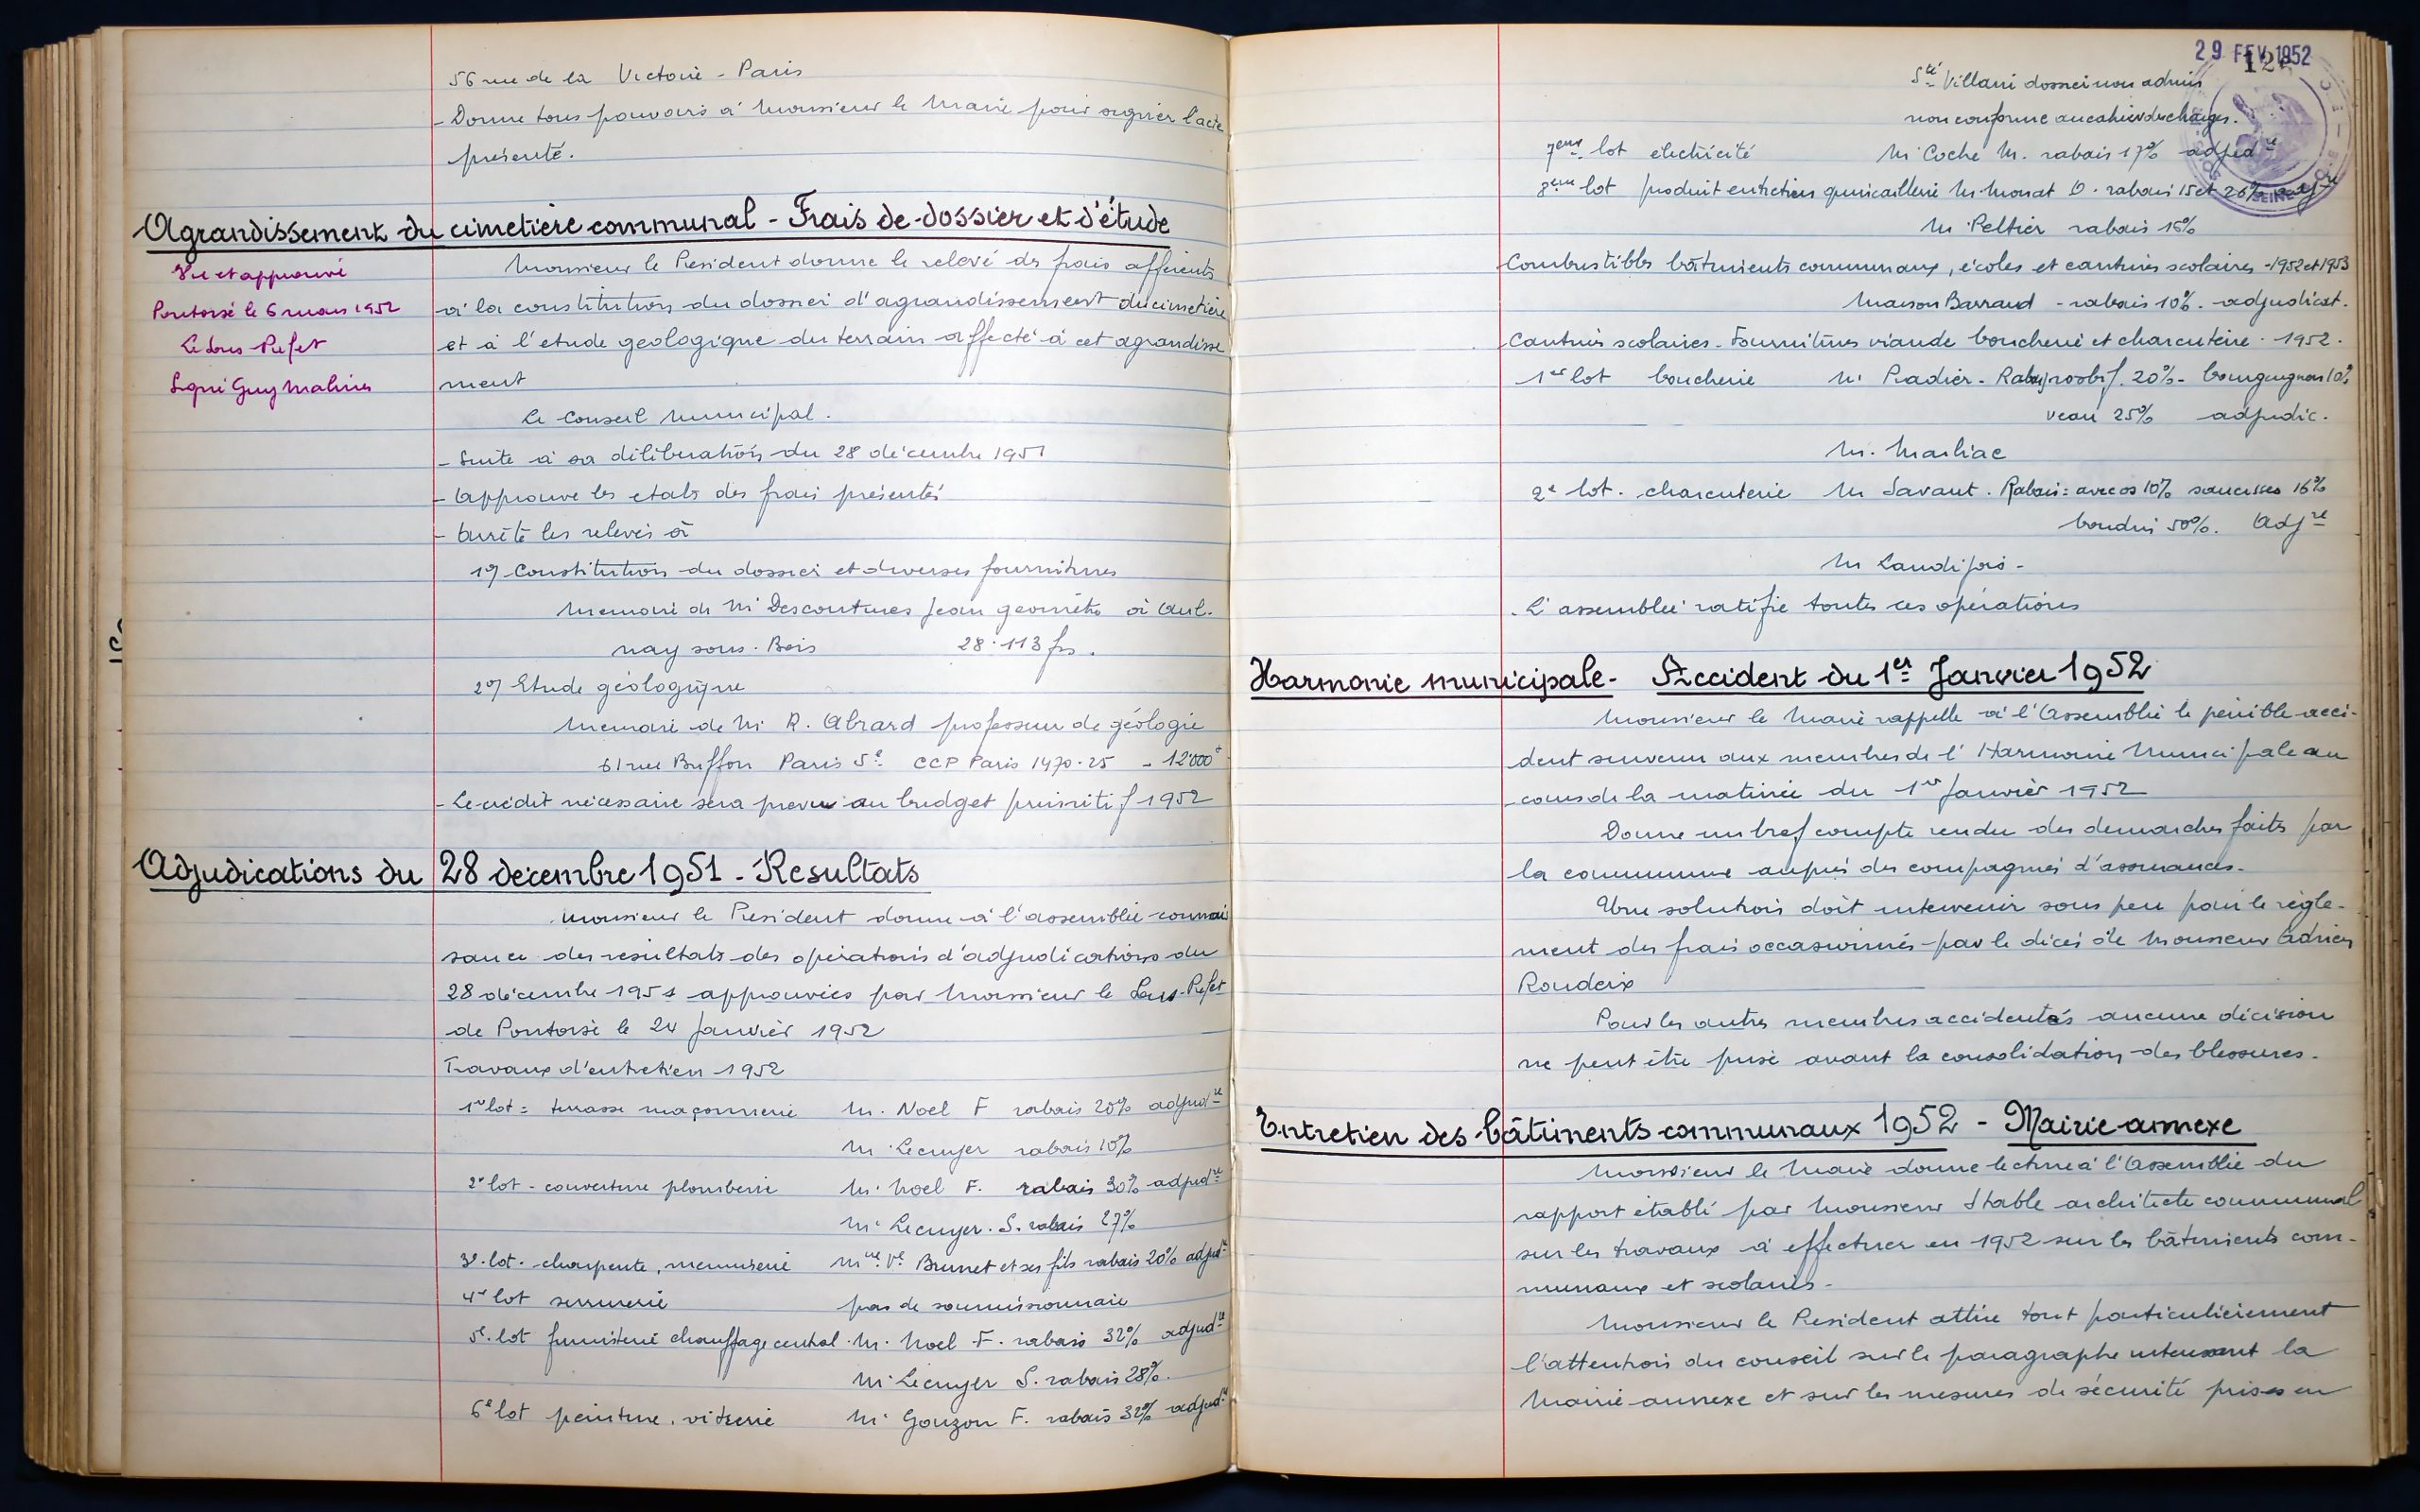 56 rue de la Victoire - Paris
- Donne tous pouvoirs à Monsieur le Maire pour signer l'acte
présenté.
Agrandissement du cimetière communal - Frais de dossier et d'étude
Vu et approuvé
Pontoise le 6 mars 1952
Le Sous Préfet
Signé Guy Malines
Monsieur le Président donne le relevé des frais afférents
à la constitution du dossier d'agrandissement du cimetière
et à l'étude géologique du terrain affecté à cet agrandisse
ment
Le Conseil Municipal.
- Suite à sa délibération du 28 décembre 1951
- Approuve les états des frais présentés
- Arrête les relevés à
1º Constitution du dossier et diverses fournitures
Mémoire de Mr Descoutures Jean géomètre à Aul.
nay sous-Bois 28.113 frs.
2º) Etude géologique
Mémoire de Mr R. Abrard professeur de géologie
61 rue Buffon Paris 5e CCP Paris 1470-25 - 12.000f
- Le crédit nécessaire sera prévu au budget primitif 1952
Adjudications du 28 décembre 1951 - Résultats
Monsieur le Président donne à l'assemblée connais
sance des résultats des opérations d'adjudications du
28 décembre 1951 approuvées par Monsieur le Sous-Préfet
de Pontoise le 24 Janvier 1952
Travaux d'entretien 1952
1er lot = terrasse maçonnerie M. Noel F rabais 20% adjudre
Mr Lecuyer rabais 10%
2e lot - couverture plomberie Mr Noel F. rabais 30% adjudre
Mr Lecuyer. S. rabais 27%
3e lot - charpente, menuiserie Mme Ve Brunet et ses fils rabais 20% adjudre
4e lot serrurerie pas de soumissionnaire
5e lot fumisterie chauffage central. M. Noel F. rabais 32% adjudre
Mr Lecuyer S. rabais 28%.
6e lot peinture, vitrerie Mr Gouzon F. rabais 32% adjudre
29 FEV 1952
Sté Villani dossier non admis
non conforme au cahier des charges.
7eme lot électricité Mr Coche M. rabais 17% adjudre
8eme lot produit entretien quincaillerie Mr Monat O. rabais 15 et 26% adjre
SEINE
Mr Peltier rabais 15%
Combustibles bâtiments communaux, écoles et cantines scolaires - 1952 et 1953
Maison Barraud - rabais 10%. adjudicat.
Cantines scolaires - Fournitures viande boucherie et charcuterie - 1952.
1er lot boucherie Mr Pradier - Rabais roosbif. 20% - bourguignon 10%
veau 25% adjudic.
Mr. Marliac
2e lot. charcuterie Mr Savant. Rabais = avec os 10% saucisses 16%
boudin 50%. Adjre
Mr Laudifois -
. L'assemblée ratifie toutes ces opérations
Harmonie municipale - Accident du 1er Janvier 1952
Monsieur le Maire rappelle à l'Assemblée le pénible acci-
dent survenu aux membres de l'Harmonie Municipale au
cours de la matinée du 1er Janvier 1952
Donne un bref compte rendu des démarches faites par
la commune auprès des compagnies d'assurances.
Une solution doit intervenir sous peu pour le règle-
ment des frais occasionnés par le décès de Monsieur Adrien
Roudeix
Pour les autres membres accidentés aucune décision
ne peut être prise avant la consolidation des blessures.
Entretien des bâtiments communaux 1952 - Mairie annexe
Monsieur le Maire donne lecture à l'Assemblée du
rapport établi par Monsieur Stable architecte communal
sur les travaux à effectuer en 1952 sur les bâtiments com-
munaux et scolaires.
Monsieur le Président attire tout particulièrement
l'attention du conseil sur le paragraphe intéressant la
Mairie-annexe et sur les mesures de sécurité prises en